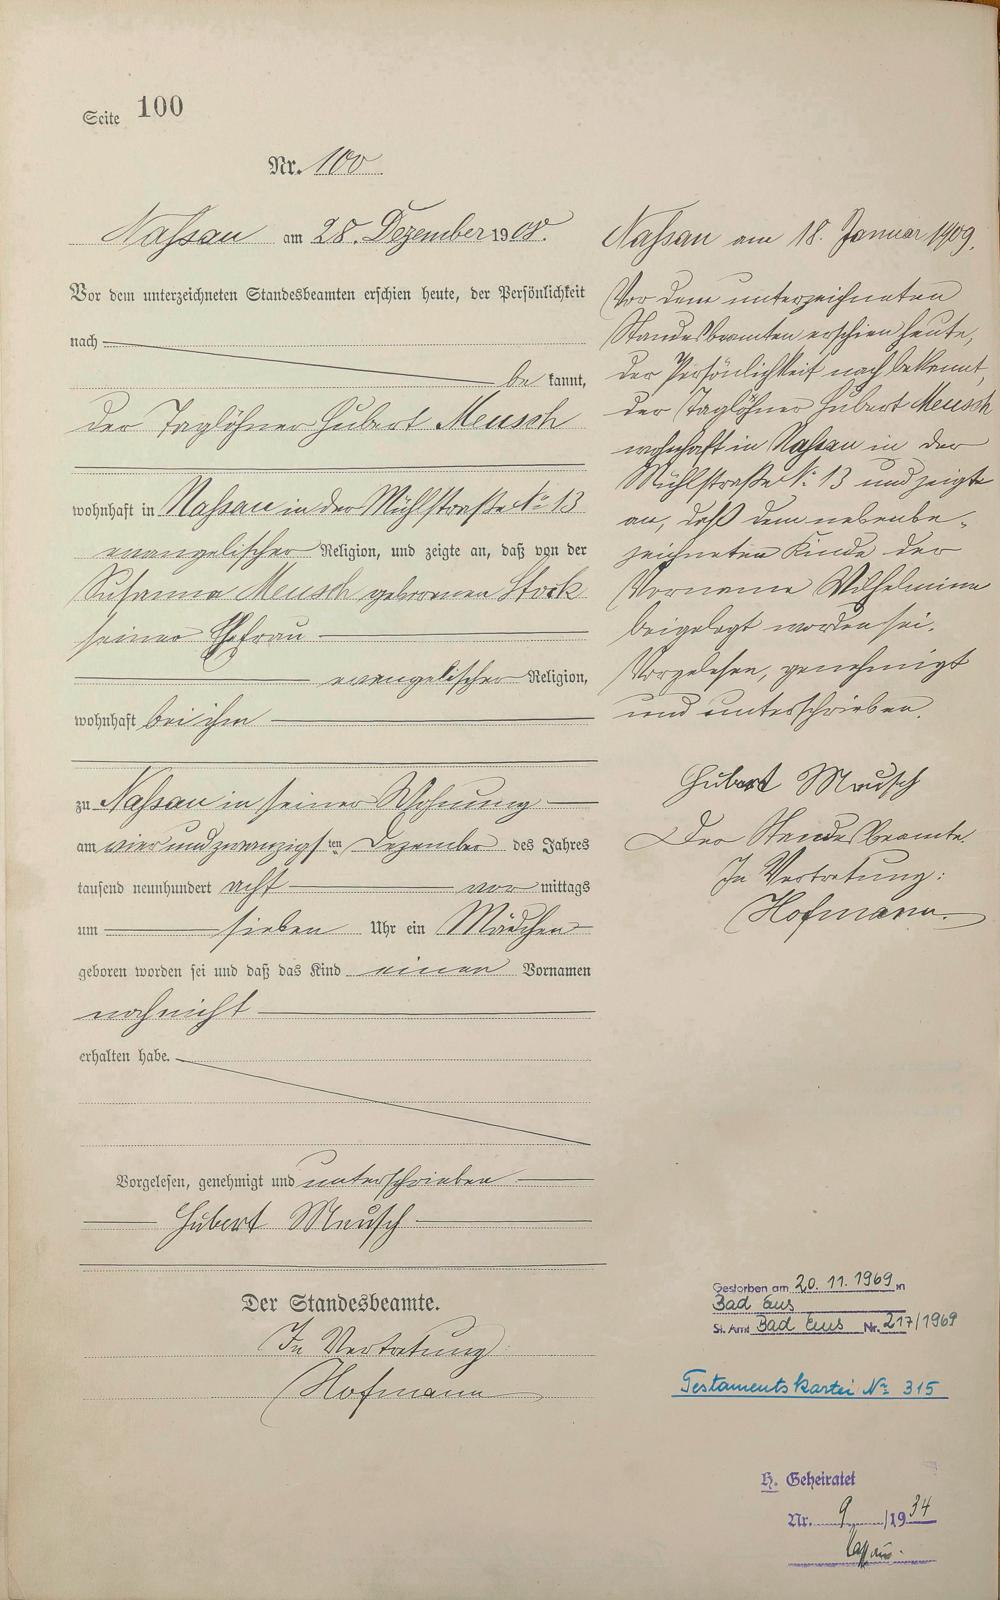 Seite 100
Nr. 100
Nassau am 28. Dezember 1908.
Vor dem unterzeichneten Standesbeamten erschien heute, der Persönlichkeit
nach
be kannt,
der Taglöhner Hubert Meusch
wohnhaft in Nassau in der Mühlstraße No 13
evangelischer Religion, und zeigte an, daß von der
Susanna Meusch geborenen Stock
seiner Ehefrau
evangelischer Religion,
wohnhaft bei ihm
zu Nassau in seiner Wohnung
am vierundzwanzigsten Dezember des Jahres
tausend neunhundert acht vor mittags
um sieben Uhr ein Mädchen
geboren worden sei und daß das Kind einen Vornamen
noch nicht
erhalten habe.
Vorgelesen, genehmigt und unterschrieben
Hubert Meusch
Der Standesbeamte.
In Vertretung:
Hofmann
Nassau am 18. Januar 1909.
Vor dem unterzeichneten
Standesbeamten erschien heute,
der Persönlichkeit nach bekannt,
der Taglöhner Hubert Meusch
wohnhaft in Nassau in der
Mühlstraße No: 13 und zeigte
an, daß dem nebenbe-
zeichneten Kinde der
Vorname Wilhelmine
beigelegt worden sei.
Vorgelesen, genehmigt
und unterschrieben.
Hubert Meusch
Der Standesbeamte.
In Vertretung:
Hofmann.
Gestorben am 20. 11. 1969 in
Bad Ems
St. Amt Bad Ems Nr. 217/1969
Testamentskartei No 315
H. Geheiratet
Nr. 9 /1934
Nassau.